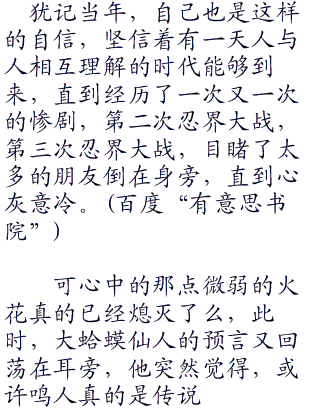 犹记当年，自己也是这样
的自信，坚信着有一天人与
人相互理解的时代能够到
来，直到经历了一次又一次
的惨剧，第二次忍界大战，
第三次忍界大战，目睹了太
多的朋友倒在身旁，直到心
灰意冷。(百度“有意思书
院”)
可心中的那点微弱的火
花真的已经熄灭了么，此
时，大蛤蟆仙人的预言又回
荡在耳旁，他突然觉得，或
许鸣人真的是传说